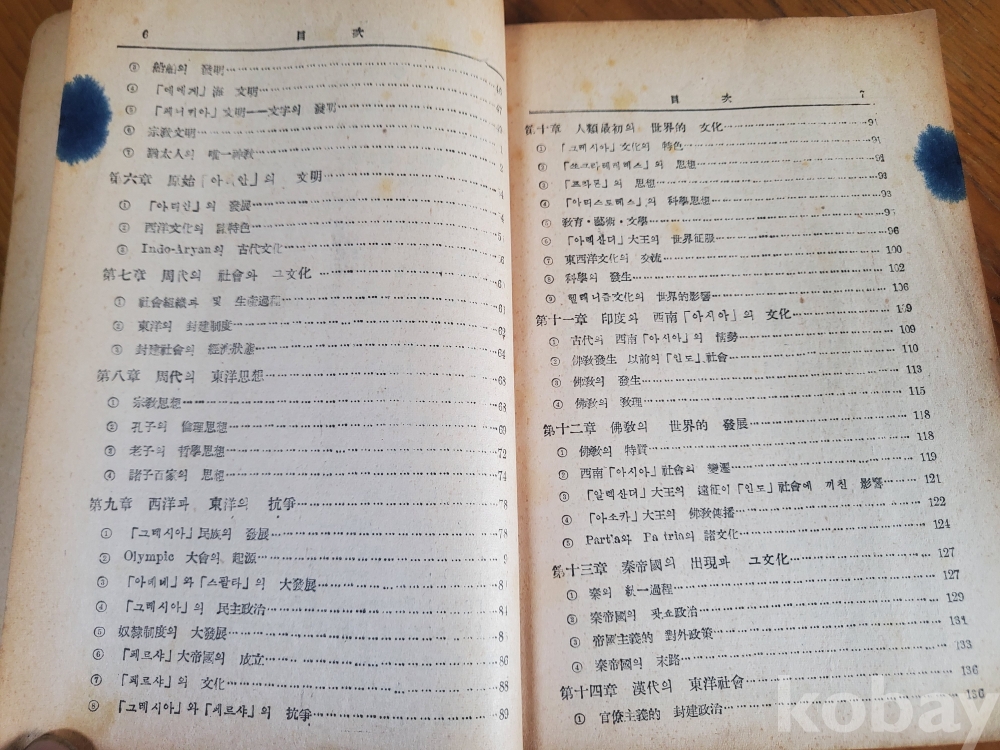 6 目次
③ 船舶의 發明
④ 「에에게」海 文明
⑤ 「페니키아」文明——文字의 發明
⑥ 宗敎文明
⑦ 猶太人의 唯一神敎
第六章 原始「아리안」의 文明
① 「아리안」의 發展
② 西洋文化의 諸特色
③ Indo-Aryan의 古代文化
第七章 周代의 社會와 그文化
① 社會組織과 및 生産過程 61
② 東洋의 封建制度 62
③ 封建社會의 經濟狀態 64
第八章 周代의 東洋思想 68
① 宗敎思想 68
② 孔子의 倫理思想 69
③ 老子의 哲學思想 72
④ 諸子百家의 思想 74
第九章 西洋과 東洋의 抗爭 78
① 「그레시아」民族의 發展 78
② Olympic 大會의 起源
③ 「아테네」와「스팔타」의 大發展
④ 「그레시아」의 民主政治 84
⑤ 奴隷制度의 大發展
⑥ 「페르샤」大帝國의 成立 86
⑦ 「페르샤」의 文化 88
⑧ 「그레시아」와「페르샤」의 抗爭 89
目次 7
第十章 人類最初의 世界的 文化 91
① 「그레시아」文化의 特色 91
② 「쏘크라테레스」의 思想 91
③ 「프라톤」의 思想 92
④ 「아리스토테레스」의 科學思想 93
⑤ 敎育·藝術·文學
⑥ 「아렉산더」大王의 世界征服 96
⑦ 東西洋文化의 交流 100
⑧ 科學의 發生 102
⑨ 헬레니즘文化의 世界的影響 106
第十一章 印度와 西南「아시아」의 文化 109
① 古代의 西南「아시아」의 情勢 109
② 佛敎發生 以前의「인도」社會 110
③ 佛敎의 發生 113
④ 佛敎의 敎理 115
第十二章 佛敎의 世界的 發展 118
① 佛敎의 特質 118
② 西南「아시아」社會의 變遷 119
③ 「알렉산더」大王의 遠征이「인도」社會에 끼친 影響 121
④ 「아소카」大王의 佛敎傳播 122
⑤ Part'a와 Fa tria의 諸文化 124
第十三章 秦帝國의 出現과 그文化 127
① 秦의 統一過程 127
② 秦帝國의 팟쇼政治 129
③ 帝國主義的 對外政策 131
④ 秦帝國의 末路 133
第十四章 漢代의 東洋社會 136
① 官僚主義的 封建政治 136
kobay